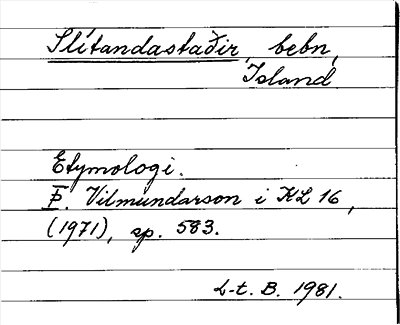 Slítandastaðir, bebn,
Island
Etymologi.
Þ. Vilmundarson i KL 16,
(1971), sp. 583.
L-t. B. 1981.